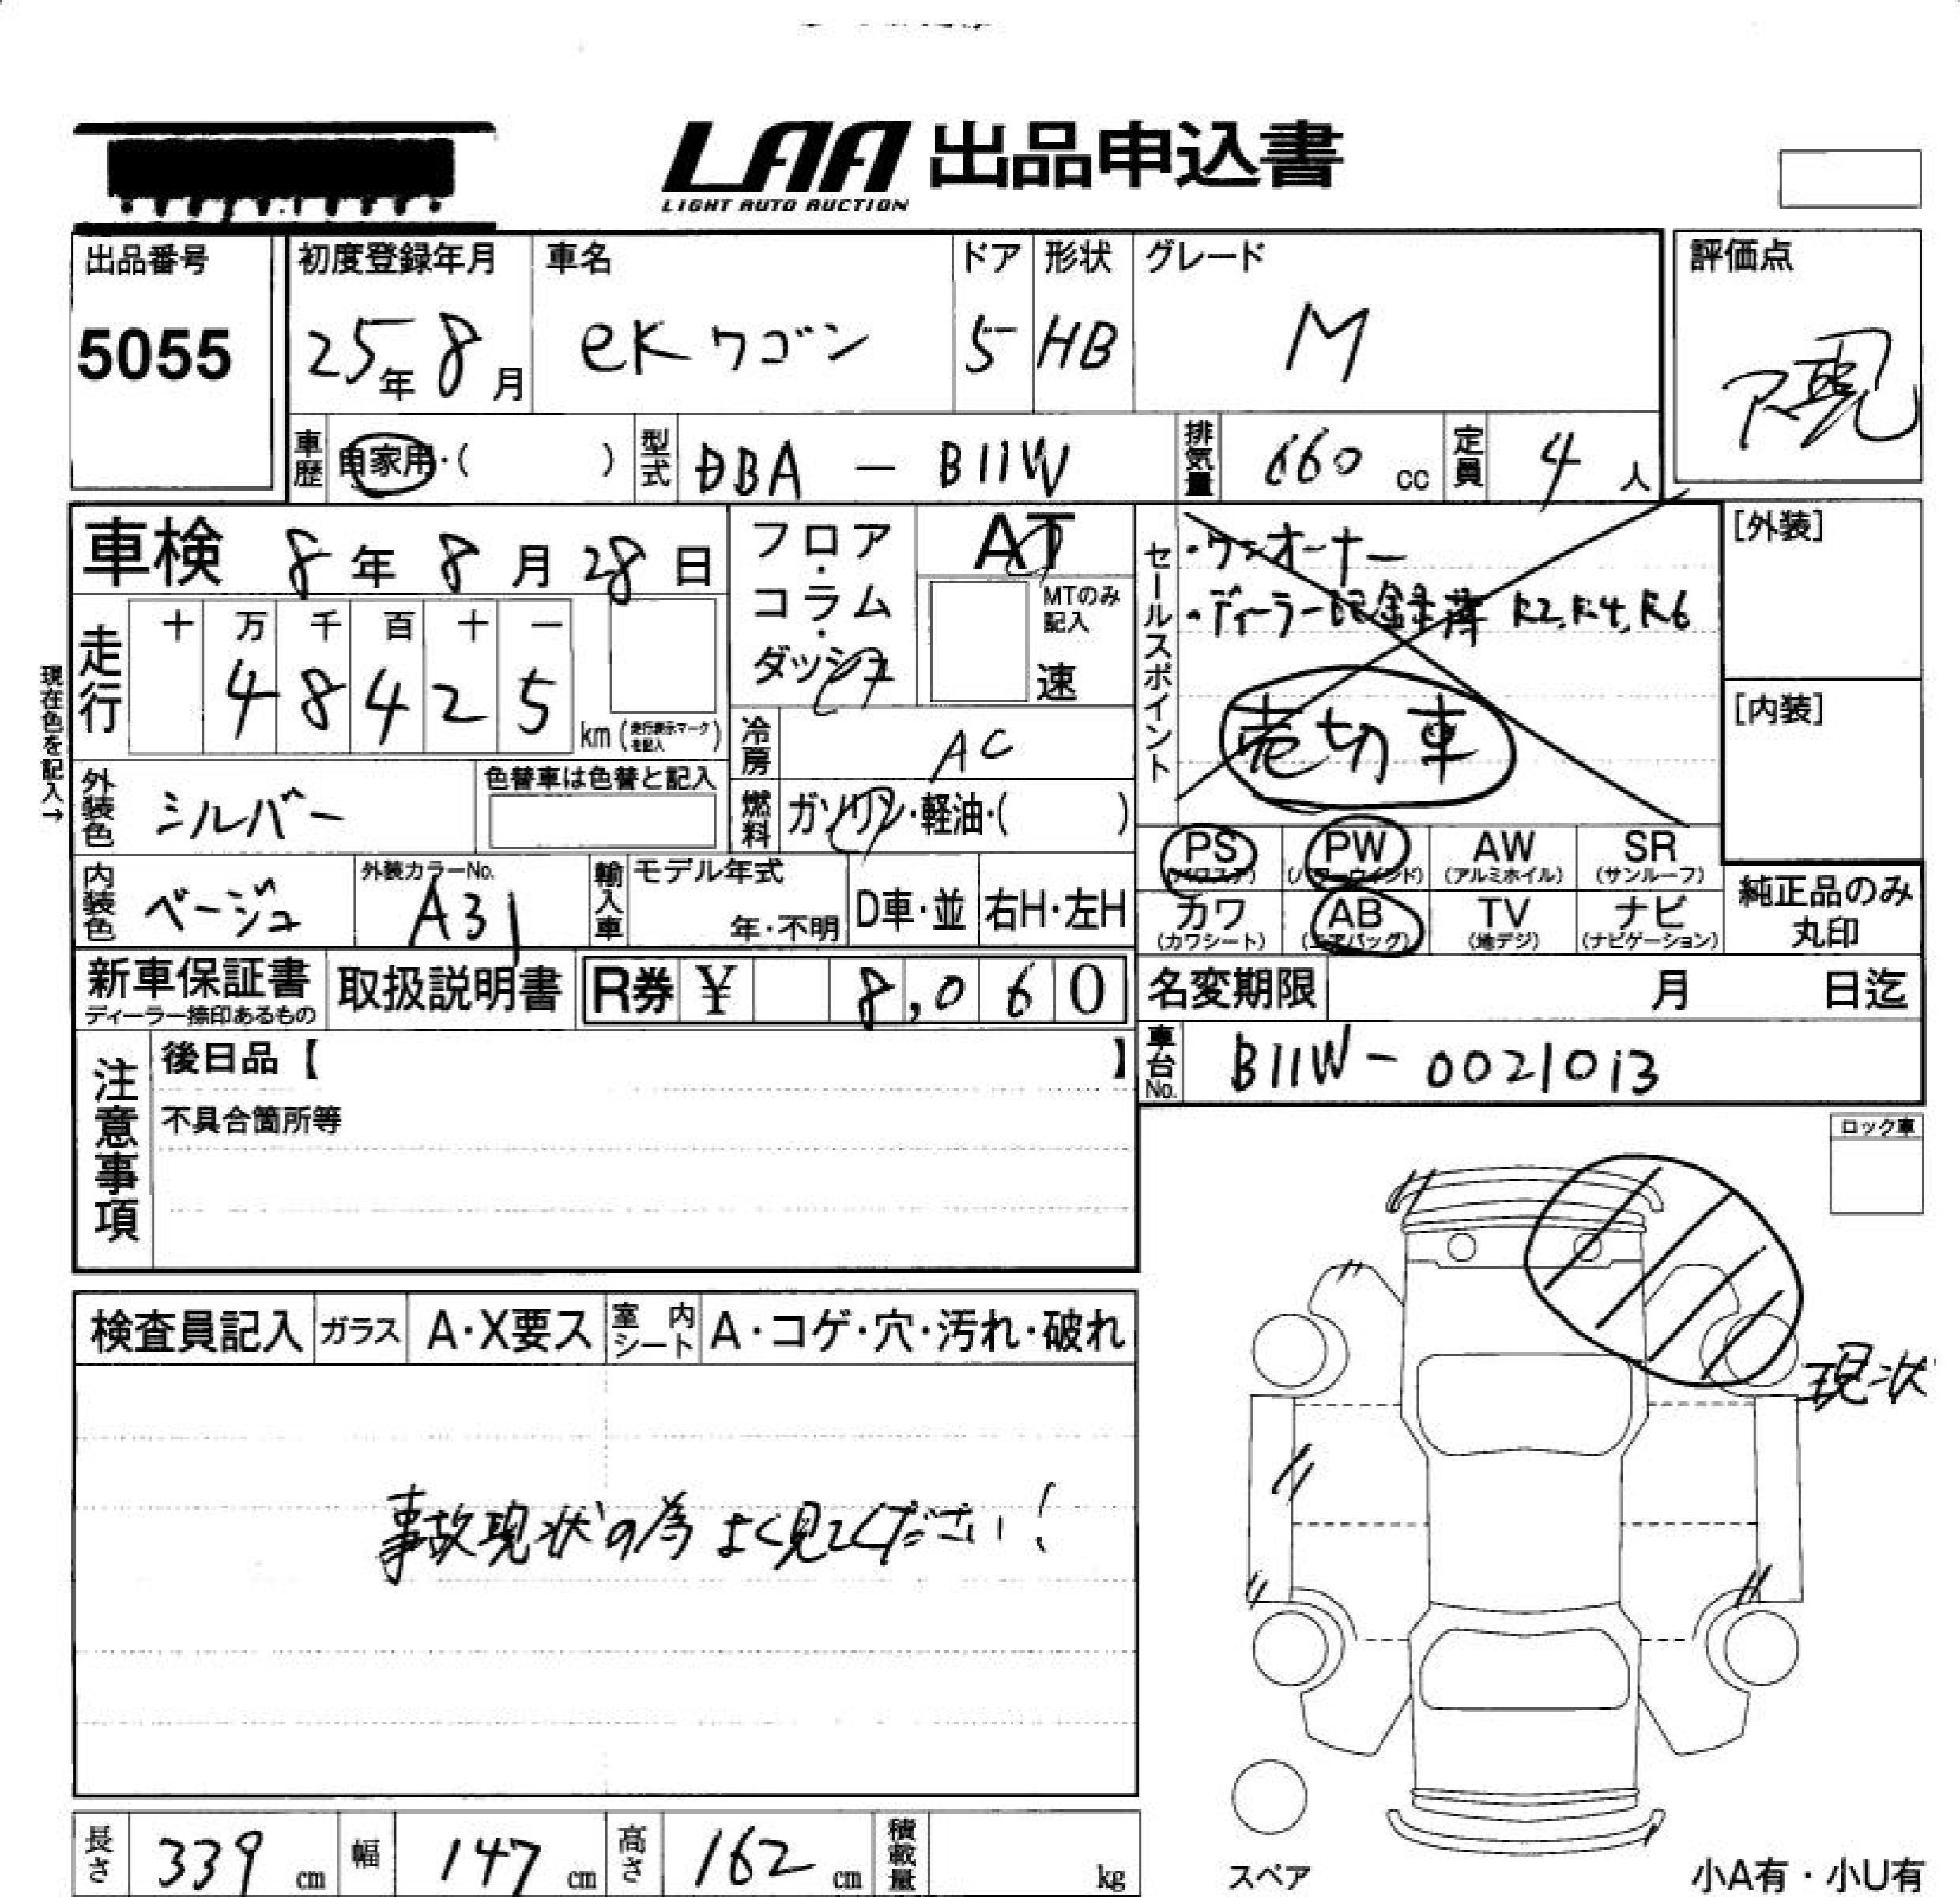 LAA 出品申込書
LIGHT AUTO AUCTION
出品番号
5055
初度登録年月
25年 8月
車名
eKワゴン
ドア
5
形状
HB
グレード
M
評価点
現
車歴
自家用・( )
型式
DBA - B11W
排気量
660 cc
定員
4 人
車検 8年 8月 28日
フロア・コラム・ダッシュ
AT
MTのみ記入
速
セールスポイント
・ワンオーナー
・ディーラー記録簿 R2,R4,R6
売切車
[外装]
[内装]
現在色を記入→
走行
十 万 千 百 十 一
4 8 4 2 5
km(走行表示マークを記入)
冷房
AC
外装色
シルバー
色替車は色替と記入
燃料
ガソリン・軽油・( )
PS
(パワステ)
PW
(パワーウインド)
AW
(アルミホイル)
SR
(サンルーフ)
カワ
(カワシート)
AB
(エアバッグ)
TV
(地デジ)
ナビ
(ナビゲーション)
純正品のみ
丸印
内装色
ベージュ
外装カラーNo.
A31
輸入車
モデル年式
年・不明
D車・並
右H・左H
新車保証書
ディーラー捺印あるもの
取扱説明書
R券 ¥ 8,060
名変期限 月 日迄
車台No.
B11W-0021013
注意事項
後日品【 】
不具合箇所等
ロック車
検査員記入
ガラス
A・X要ス
室内シート
A・コゲ・穴・汚れ・破れ
現状
事故現状の為よく見てください!
長さ 339 cm
幅 147 cm
高さ 162 cm
積載量 kg
スペア
小A有・小U有